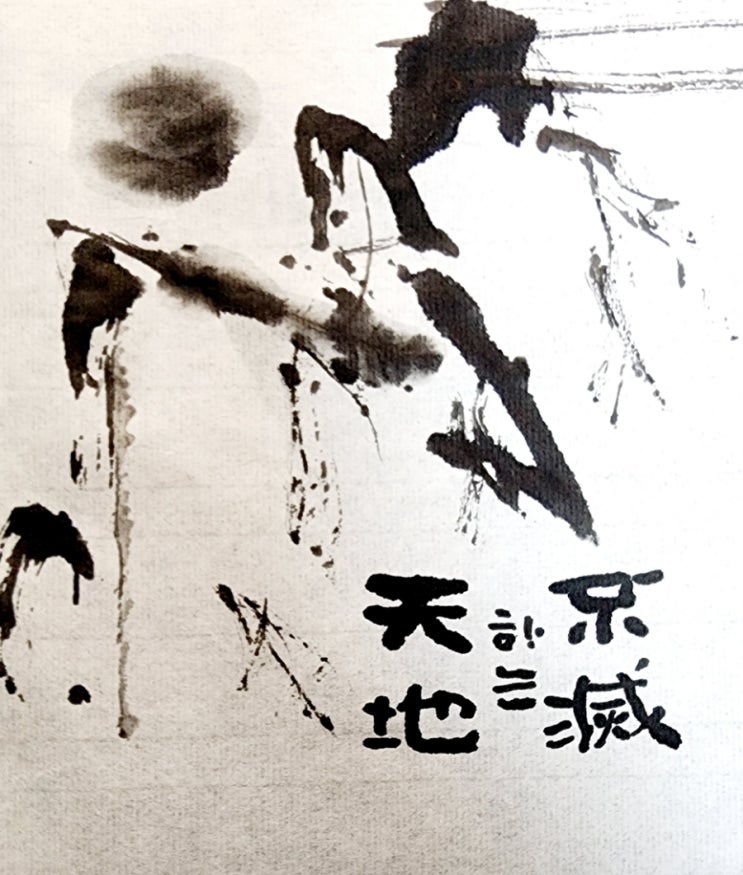 不滅
하는
天地